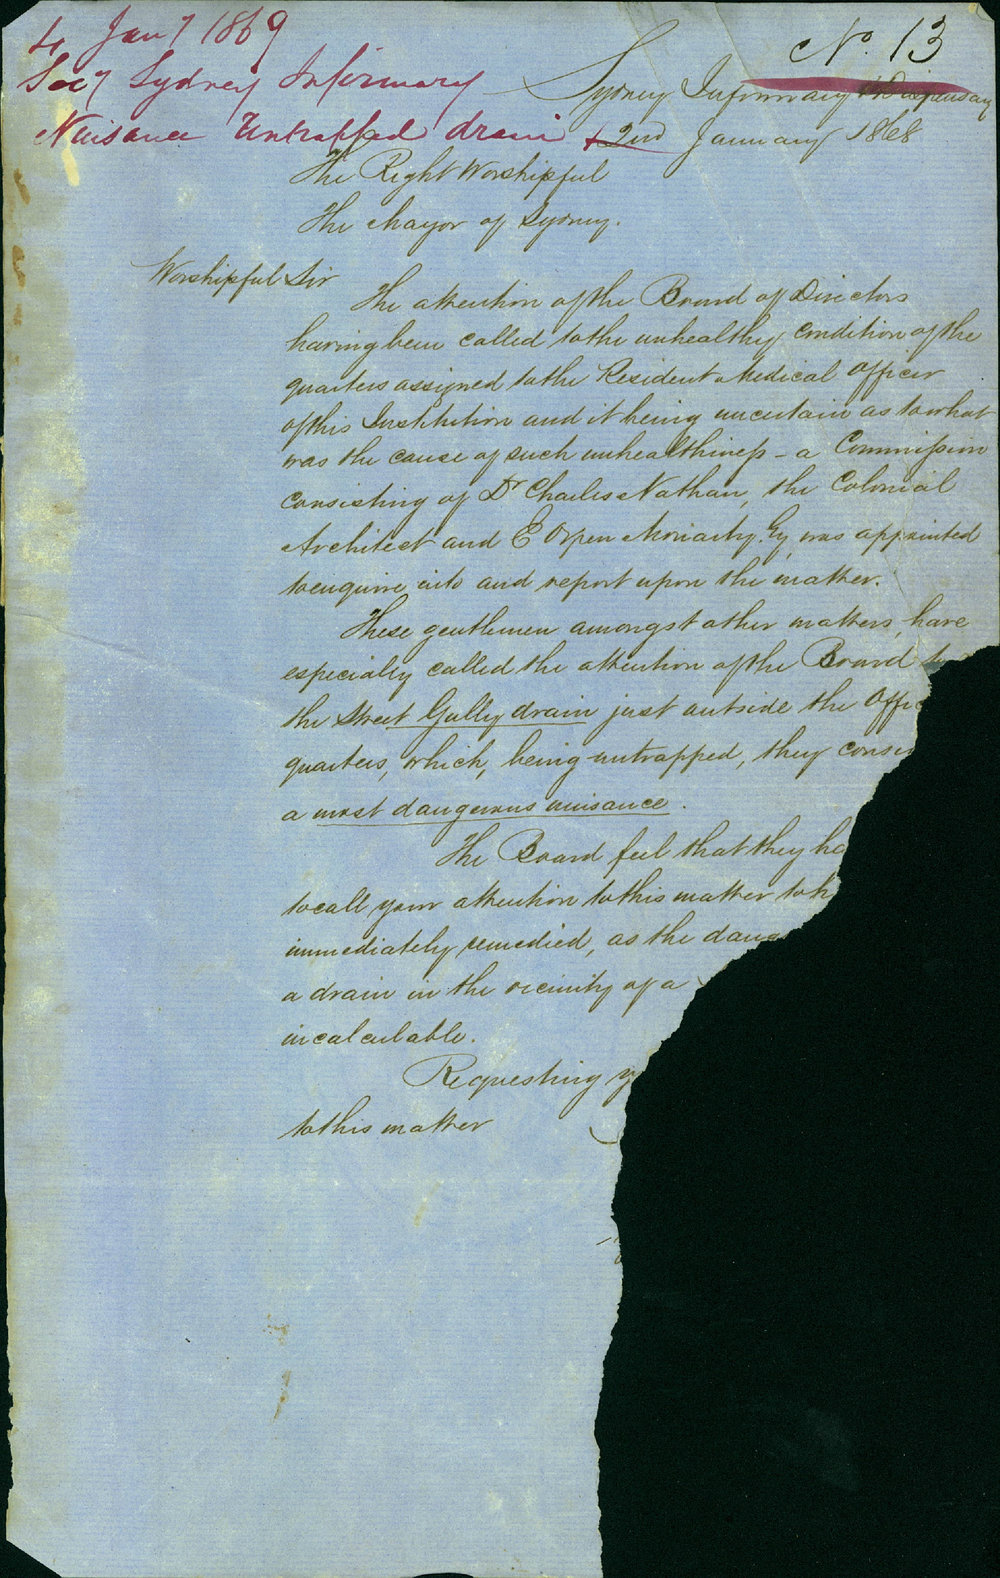 No. 13
4 Jany 1869
Secy Sydney Infirmary
Nuisance Untrapped drain
Sydney Infirmary & Dispensary
2nd January 1868
The Right Worshipful
The Mayor of Sydney.
Worshipful Sir
The attention of the Board of Directors
having been called to the unhealthy condition of the
quarters assigned to the Resident Medical Officer
of this Institution and it being uncertain as to what
was the cause of such unhealthiness – a Commission
consisting of Dr Charles Nathan, the Colonial
Architect and E Orpen Moriarty Esq, was appointed
to enquire into and report upon the matter.
These gentlemen amongst other matters, have
especially called the attention of the Board to
the Street Gully drain just outside the Offic
quarters, which, being untrapped, they consi
a most dangerous nuisance.
The Board feel that they ha
to call your attention to this matter to h
immediately remedied, as the dang
a drain in the vicinity of a
incalculable.
Requesting y
to this matter